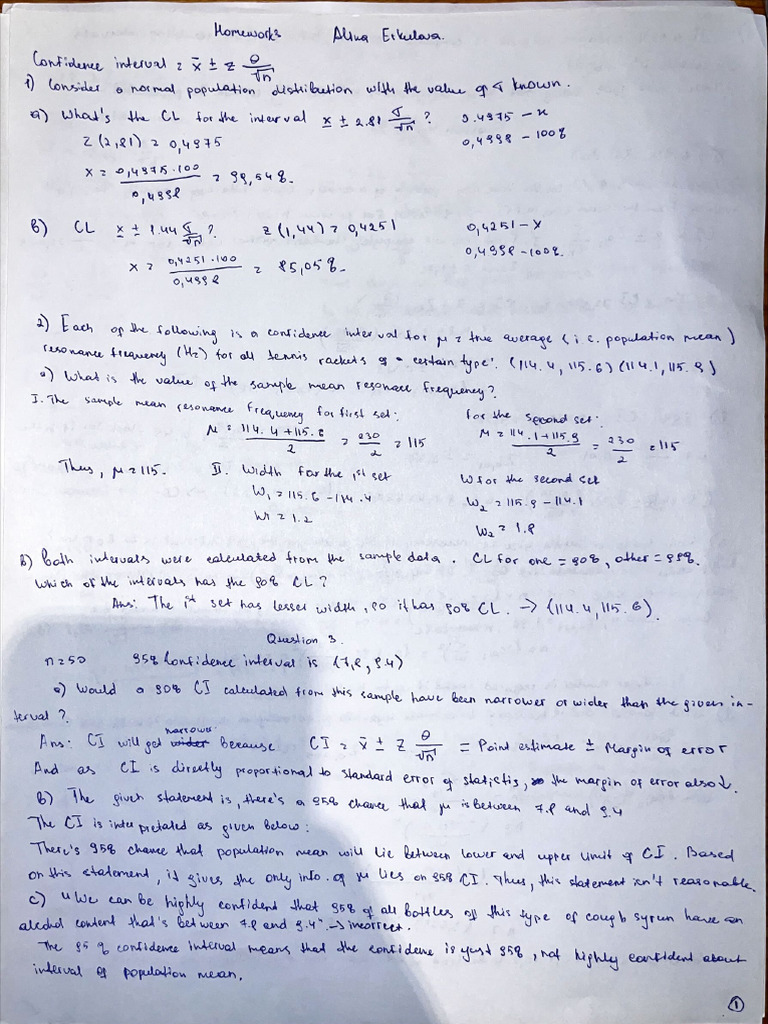 Homework3 Alina Erkulova.
Confidence interval = x̄ ± z θ/√n
1) Consider a normal population distribution with the value of σ known.
a) What's the CL for the interval x ± 2.81 σ/√n ? 0.4975 - x
z(2,81) = 0,4975 0,4998 - 100%
x = 0,4975·100/0,4998 = 99,54%.
b) CL x ± 1.44 σ/√n ? z(1,44) = 0,4251 0,4251 - x
x = 0,4251·100/0,4998 = 85,05%. 0,4998 - 100%.
2) Each of the following is a confidence interval for μ = true average (i.e. population mean)
resonance frequency (Hz) for all tennis rackets of a certain type: (114.4, 115.6) (114.1, 115.9)
a) What is the value of the sample mean resonace frequency?
I. The sample mean resonance frequency for first set: For the second set:
μ = 114.4+115.6/2 = 230/2 = 115 μ = 114.1+115.9/2 = 230/2 = 115
Thus, μ = 115. II. Width for the 1st set W for the second set
W₁ = 115.6 - 114.4 W₂ = 115.9 - 114.1
W₁ = 1.2 W₂ = 1.8
b) Both intervals were calculated from the sample data. CL for one = 90%, other = 99%.
Which of the intervals has the 90% CL?
Ans: The 1st set has lesser width, so it has 90% CL. → (114.4, 115.6).
Question 3.
n = 50 95% Confidence interval is (7,8, 9.4)
a) Would a 90% CI calculated from this sample have been narrower or wider than the given in-
terval?
Ans: CI will get narrower because CI = x̄ ± z θ/√n = Point estimate ± Margin of error
And as CI is directly proportional to standard error of statistics, the margin of error also ↓.
b) The given statement is, there's a 95% chance that μ is between 7.8 and 9.4
The CI is interpretated as given below:
There's 95% chance that population mean will lie between lower and upper limit of CI. Based
on this statement, it gives the only info. of μ lies on 95% CI. Thus, this statement isn't reasonable.
c) "We can be highly confident that 95% of all bottles of this type of cough syrun have an
alcohol content that's between 7.8 and 9.4" → incorrect.
The 95% confidence interval means that the confidene is just 95%, not highly confident about
interval of population mean.
1